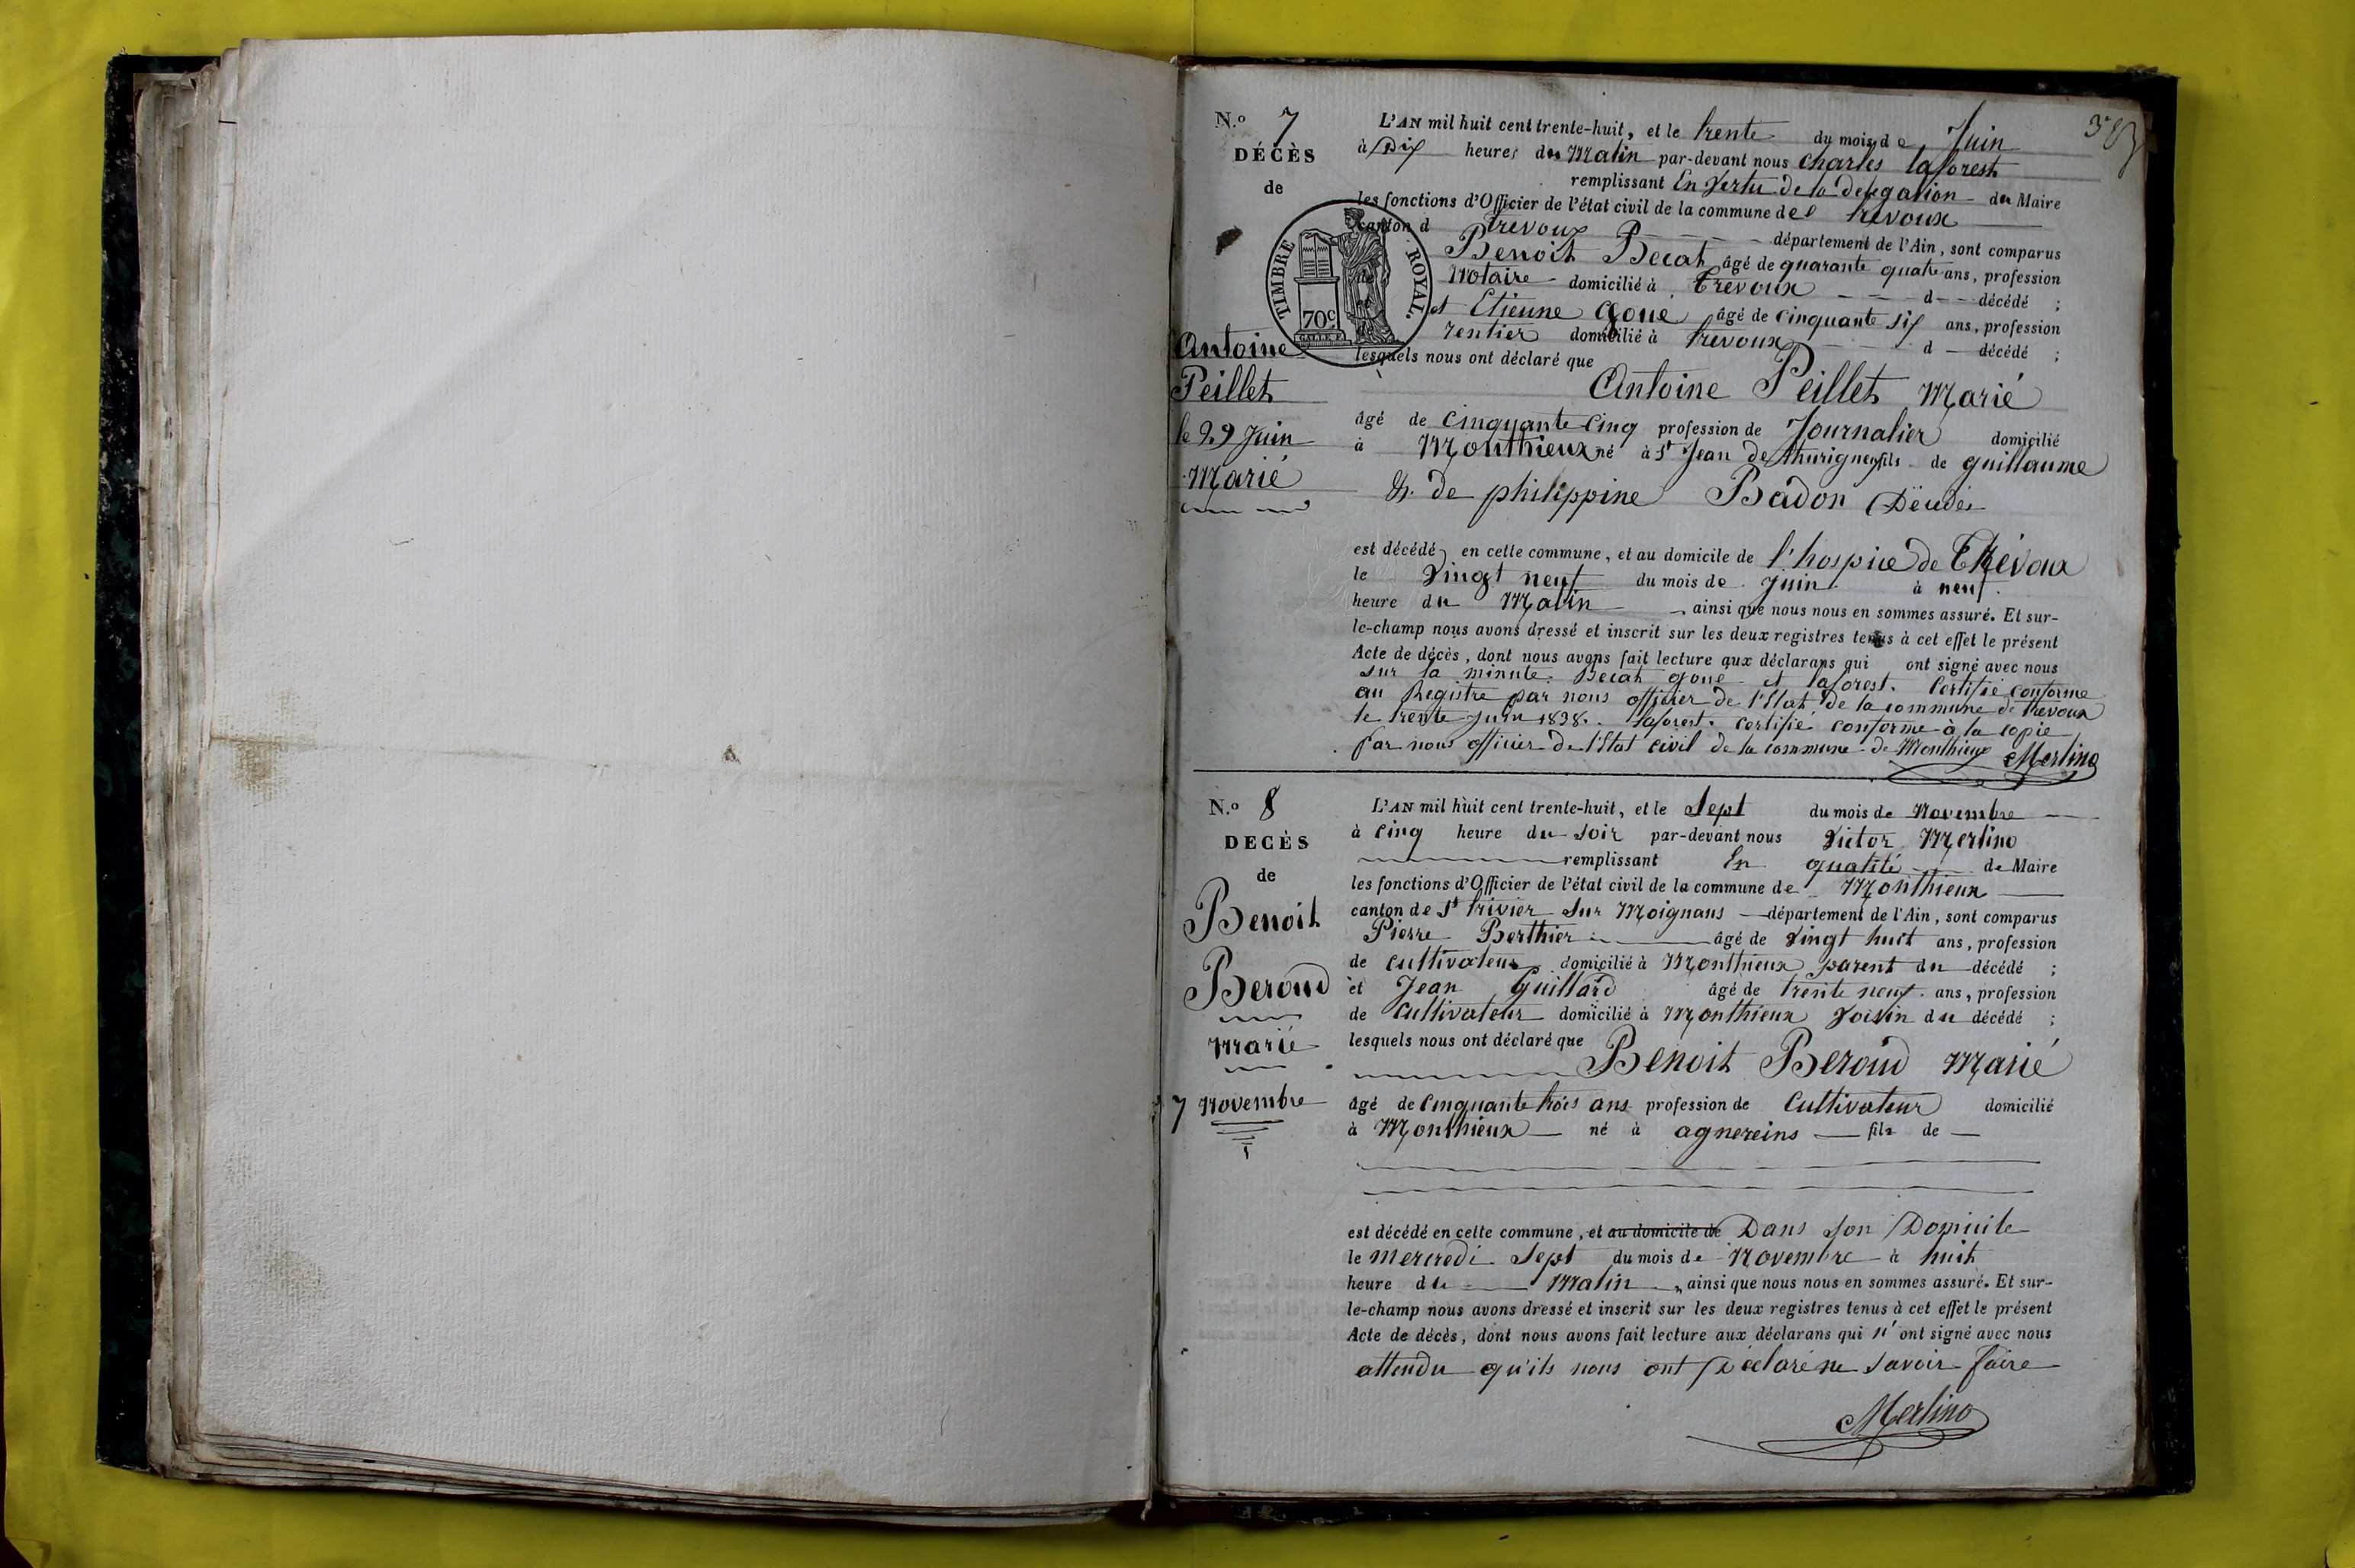 N.º 7
DÉCÈS
de
Antoine
Peillet
le 29 Juin
Marié
TIMBRE ROYAL.
70c
GALLE F.
L'AN mil huit cent trente-huit, et le trente du mois de Juin
à Dix heures du Matin par-devant nous Charles laforest
remplissant En Vertu de la delegation du Maire
les fonctions d'Officier de l'état civil de la commune de trevoux
canton d trevoux département de l'Ain, sont comparus
Benoit Becat âgé de quarante quatre ans, profession
de Notaire domicilié à Trevoux d décédé ;
et Etienne Goue âgé de cinquante six ans, profession
de rentier domicilié à trevoux d décédé ;
lesquels nous ont déclaré que
Antoine Peillet Marié
âgé de cinquante cinq profession de Journalier domicilié
à Monthieux né à St Jean de thurigneux fils de guillaume
& de philippine Badon
est décédé en cette commune, et au domicile de l'hospice de Trévoux
le vingt neuf du mois de juin à neuf
heure du Matin ainsi que nous nous en sommes assuré. Et sur-
le-champ nous avons dressé et inscrit sur les deux registres tenus à cet effet le présent
Acte de décès, dont nous avons fait lecture aux déclarans qui ont signé avec nous
sur la minute. Becat goue et laforest. Certifié conforme
au Registre par nous officier de l'Etat de la commune de Trevoux
le trente juin 1838. laforest. certifié conforme à la copie
par nous officier de l'Etat civil de la commune de Monthieux Merlino
N.º 8
DECÈS
de
Benoit
Beroud
Marié
7 Novembre
L'AN mil huit cent trente-huit, et le Sept du mois de Novembre
à cinq heure du soir par-devant nous Victor Merlino
remplissant En qualité de Maire
les fonctions d'Officier de l'état civil de la commune de Monthieux
canton de St trivier sur Moignans département de l'Ain, sont comparus
Pierre Berthier âgé de vingt huit ans, profession
de cultivateur domicilié à Monthieux parent du décédé ;
et Jean Guillard âgé de trente neuf ans, profession
de cultivateur domicilié à Monthieux voisin du décédé ;
lesquels nous ont déclaré que
Benoit Beroud Marié
âgé de cinquante trois ans profession de Cultivateur domicilié
à Monthieux né à agnereins fils de
est décédé en cette commune, et au domicile de Dans son Domicile
le mercredi Sept du mois de Novembre à huit
heure du Matin, ainsi que nous nous en sommes assuré. Et sur-
le-champ nous avons dressé et inscrit sur les deux registres tenus à cet effet le présent
Acte de décès, dont nous avons fait lecture aux déclarans qui n'ont signé avec nous
attendu qu'ils nous ont Déclaré ne savoir faire
Merlino